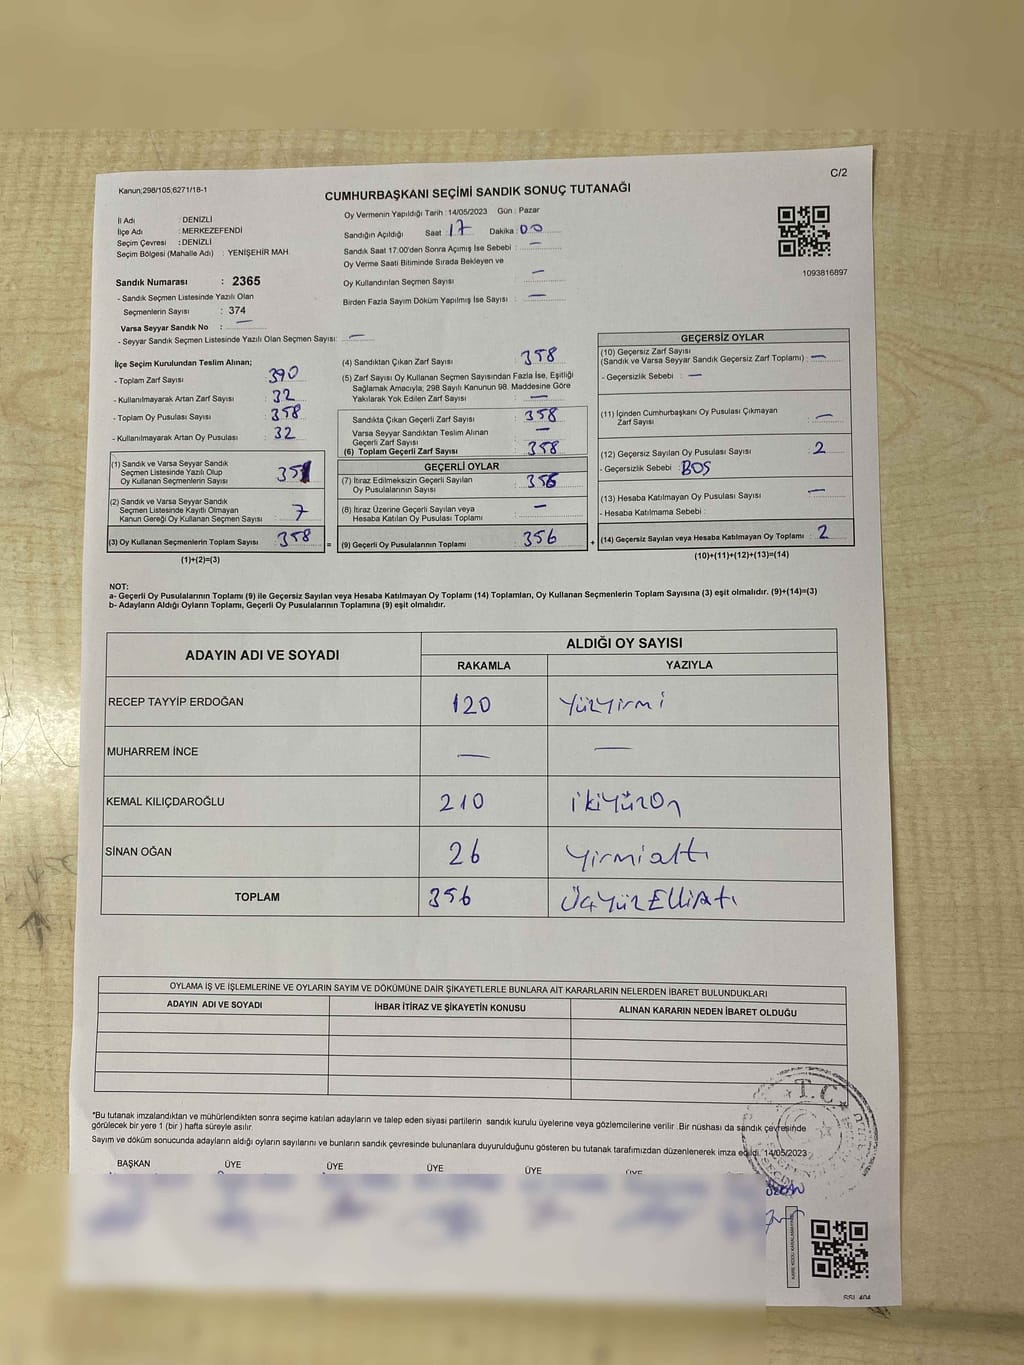 C/2
Kanun;298/105;6271/18-1
CUMHURBAŞKANI SEÇİMİ SANDIK SONUÇ TUTANAĞI
İl Adı : DENİZLİ
İlçe Adı : MERKEZEFENDİ
Seçim Çevresi : DENİZLİ
Seçim Bölgesi (Mahalle Adı) : YENİŞEHİR MAH
Oy Vermenin Yapıldığı Tarih : 14/05/2023 Gün : Pazar
Sandığın Açıldığı Saat : 17 Dakika : 00
Sandık Saat 17:00'den Sonra Açımış İse Sebebi : —
Oy Verme Saati Bitiminde Sırada Bekleyen ve
Oy Kullandırılan Seçmen Sayısı —
Birden Fazla Sayım Döküm Yapılmış İse Sayısı : —
1093816897
Sandık Numarası : 2365
- Sandık Seçmen Listesinde Yazılı Olan
Seçmenlerin Sayısı : 374
Varsa Seyyar Sandık No : —
- Seyyar Sandık Seçmen Listesinde Yazılı Olan Seçmen Sayısı: —
İlçe Seçim Kurulundan Teslim Alınan;
- Toplam Zarf Sayısı : 390
- Kullanılmayarak Artan Zarf Sayısı : 32
- Toplam Oy Pusulası Sayısı : 358
- Kullanılmayarak Artan Oy Pusulası : 32
(1) Sandık ve Varsa Seyyar Sandık
Seçmen Listesinde Yazılı Olup
Oy Kullanan Seçmenlerin Sayısı : 351
(2) Sandık ve Varsa Seyyar Sandık
Seçmen Listesinde Kayıtlı Olmayan
Kanun Gereği Oy Kullanan Seçmen Sayısı : 7
(3) Oy Kullanan Seçmenlerin Toplam Sayısı : 358
(1)+(2)=(3)
(4) Sandıktan Çıkan Zarf Sayısı : 358
(5) Zarf Sayısı Oy Kullanan Seçmen Sayısından Fazla İse, Eşitliği
Sağlamak Amacıyla; 298 Sayılı Kanunun 98. Maddesine Göre
Yakılarak Yok Edilen Zarf Sayısı : —
Sandıkta Çıkan Geçerli Zarf Sayısı : 358
Varsa Seyyar Sandıktan Teslim Alınan
Geçerli Zarf Sayısı : —
(6) Toplam Geçerli Zarf Sayısı : 358
GEÇERLİ OYLAR
(7) İtiraz Edilmeksizin Geçerli Sayılan
Oy Pusulalarının Sayısı : 356
(8) İtiraz Üzerine Geçerli Sayılan veya
Hesaba Katılan Oy Pusulası Toplamı : —
= (9) Geçerli Oy Pusulalarının Toplamı : 356
GEÇERSİZ OYLAR
(10) Geçersiz Zarf Sayısı
(Sandık ve Varsa Seyyar Sandık Geçersiz Zarf Toplamı) : —
- Geçersizlik Sebebi : —
(11) İçinden Cumhurbaşkanı Oy Pusulası Çıkmayan
Zarf Sayısı : —
(12) Geçersiz Sayılan Oy Pusulası Sayısı : 2
- Geçersizlik Sebebi : BOŞ
(13) Hesaba Katılmayan Oy Pusulası Sayısı : —
- Hesaba Katılmama Sebebi :
+ (14) Geçersiz Sayılan veya Hesaba Katılmayan Oy Toplamı : 2
(10)+(11)+(12)+(13)=(14)
NOT:
a- Geçerli Oy Pusulalarının Toplamı (9) ile Geçersiz Sayılan veya Hesaba Katılmayan Oy Toplamı (14) Toplamları, Oy Kullanan Seçmenlerin Toplam Sayısına (3) eşit olmalıdır. (9)+(14)=(3)
b- Adayların Aldığı Oyların Toplamı, Geçerli Oy Pusulalarının Toplamına (9) eşit olmalıdır.
ADAYIN ADI VE SOYADI ALDIĞI OY SAYISI
RAKAMLA YAZIYLA
RECEP TAYYİP ERDOĞAN 120 Yüzyirmi
MUHARREM İNCE — —
KEMAL KILIÇDAROĞLU 210 ikiyüzOn
SİNAN OĞAN 26 Yirmialtı
TOPLAM 356 ÜçYüzElliAltı
OYLAMA İŞ VE İŞLEMLERİNE VE OYLARIN SAYIM VE DÖKÜMÜNE DAİR ŞİKAYETLERLE BUNLARA AİT KARARLARIN NELERDEN İBARET BULUNDUKLARI
ADAYIN ADI VE SOYADI İHBAR İTİRAZ VE ŞİKAYETİN KONUSU ALINAN KARARIN NEDEN İBARET OLDUĞU
"Bu tutanak imzalandıktan ve mühürlendikten sonra seçime katılan adayların ve talep eden siyasi partilerin sandık kurulu üyelerine veya gözlemcilerine verilir .Bir nüshası da sandık çevresinde
görülecek bir yere 1 (bir ) hafta süreyle asılır.
Sayım ve döküm sonucunda adayların aldığı oyların sayılarını ve bunların sandık çevresinde bulunanlara duyurulduğunu gösteren bu tutanak tarafımızdan düzenlenerek imza edildi. 14/05/2023
T.C
BAŞKAN ÜYE ÜYE ÜYE ÜYE ÜYE